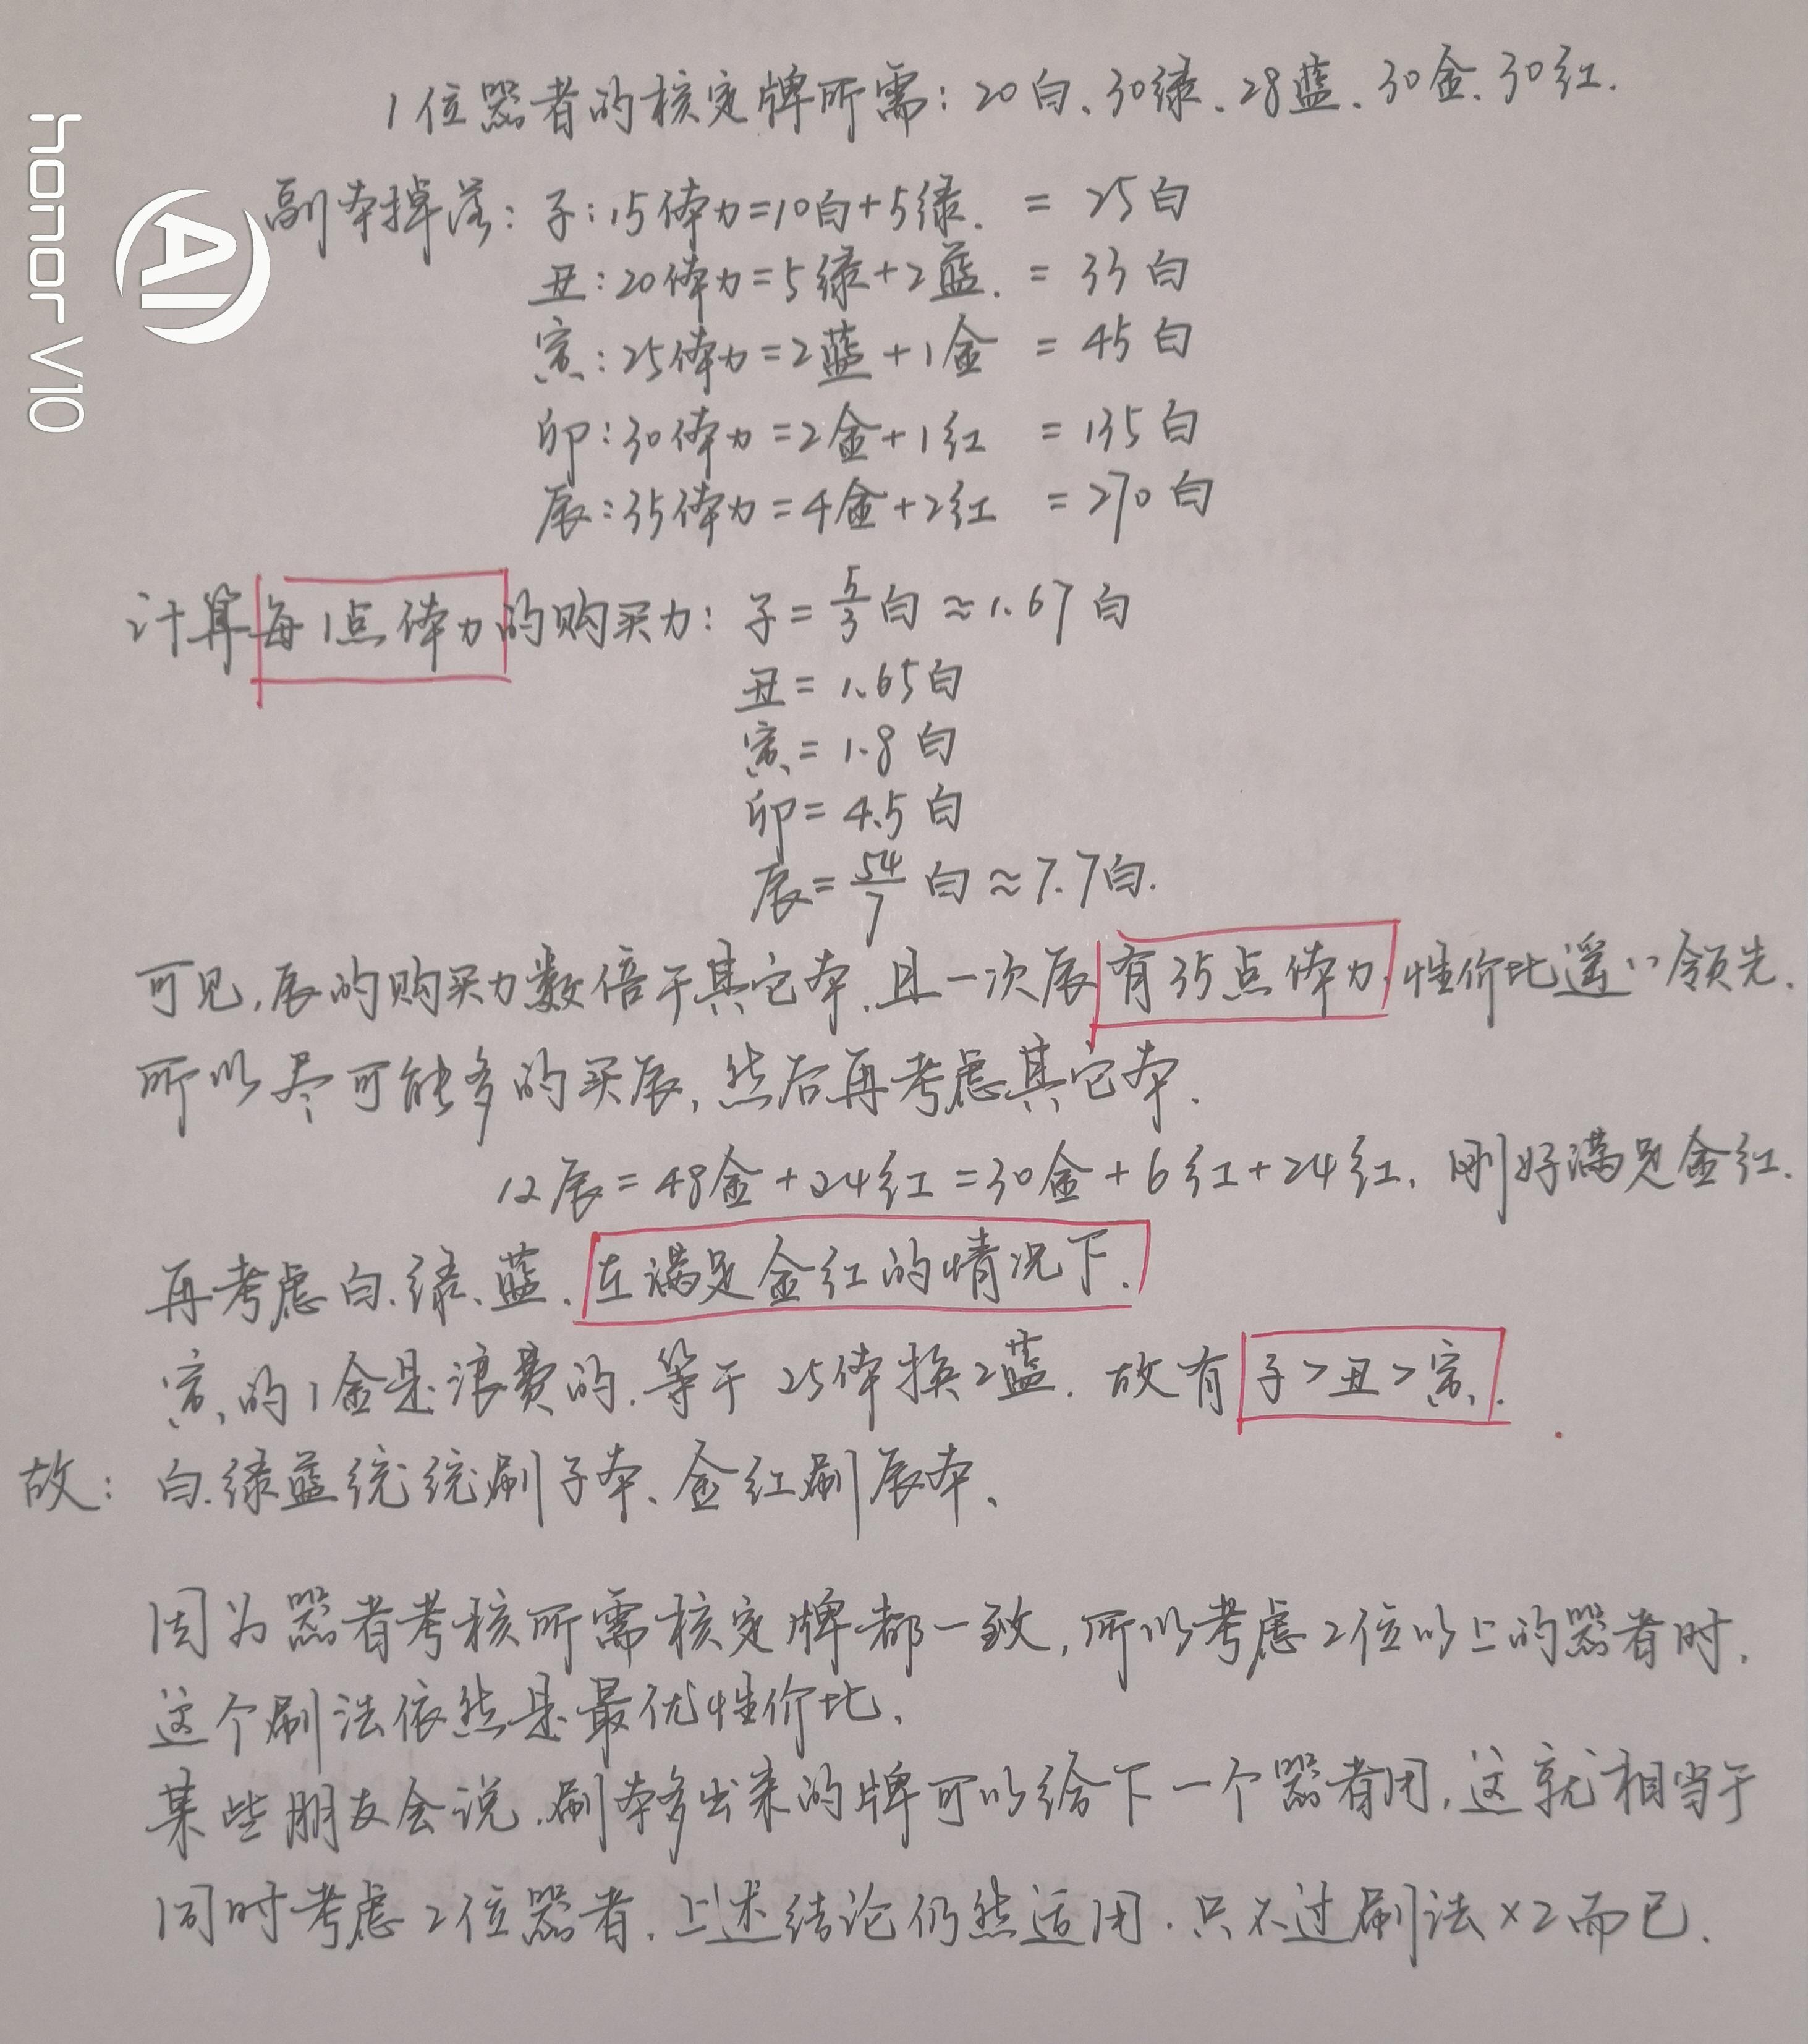 1位器者的核定牌所需：20白、30绿、28蓝、30金、30红.
副本掉落：子：15体力=10白+5绿. = 25白
丑：20体力=5绿+2蓝. = 33白
寅：25体力=2蓝+1金 = 45白
卯：30体力=2金+1红 = 135白
辰：35体力=4金+2红 = 270白
计算每1点体力的购买力：子=5/3白≈1.67白
丑=1.65白
寅=1.8白
卯=4.5白
辰=54/7白≈7.7白.
可见,辰的购买力数倍于其它本,且一次辰有35点体力,性价比遥〃领先.
所以尽可能多的买辰,然后再考虑其它本.
12辰=48金+24红=30金+6红+24红,刚好满足金红.
再考虑白、绿、蓝、在满足金红的情况下.
寅的1金是浪费的.等于25体换2蓝.故有子>丑>寅.
故：白.绿蓝统统刷子本、金红刷辰本、
因为器者考核所需核定牌都一致,所以考虑2位以上的器者时,
这个刷法依然是最优性价比.
某些朋友会说.刷本多出来的牌可以给下一个器者用,这就相当于
同时考虑2位器者.上述结论仍然适用.只不过刷法×2而已.
honor V10
AI